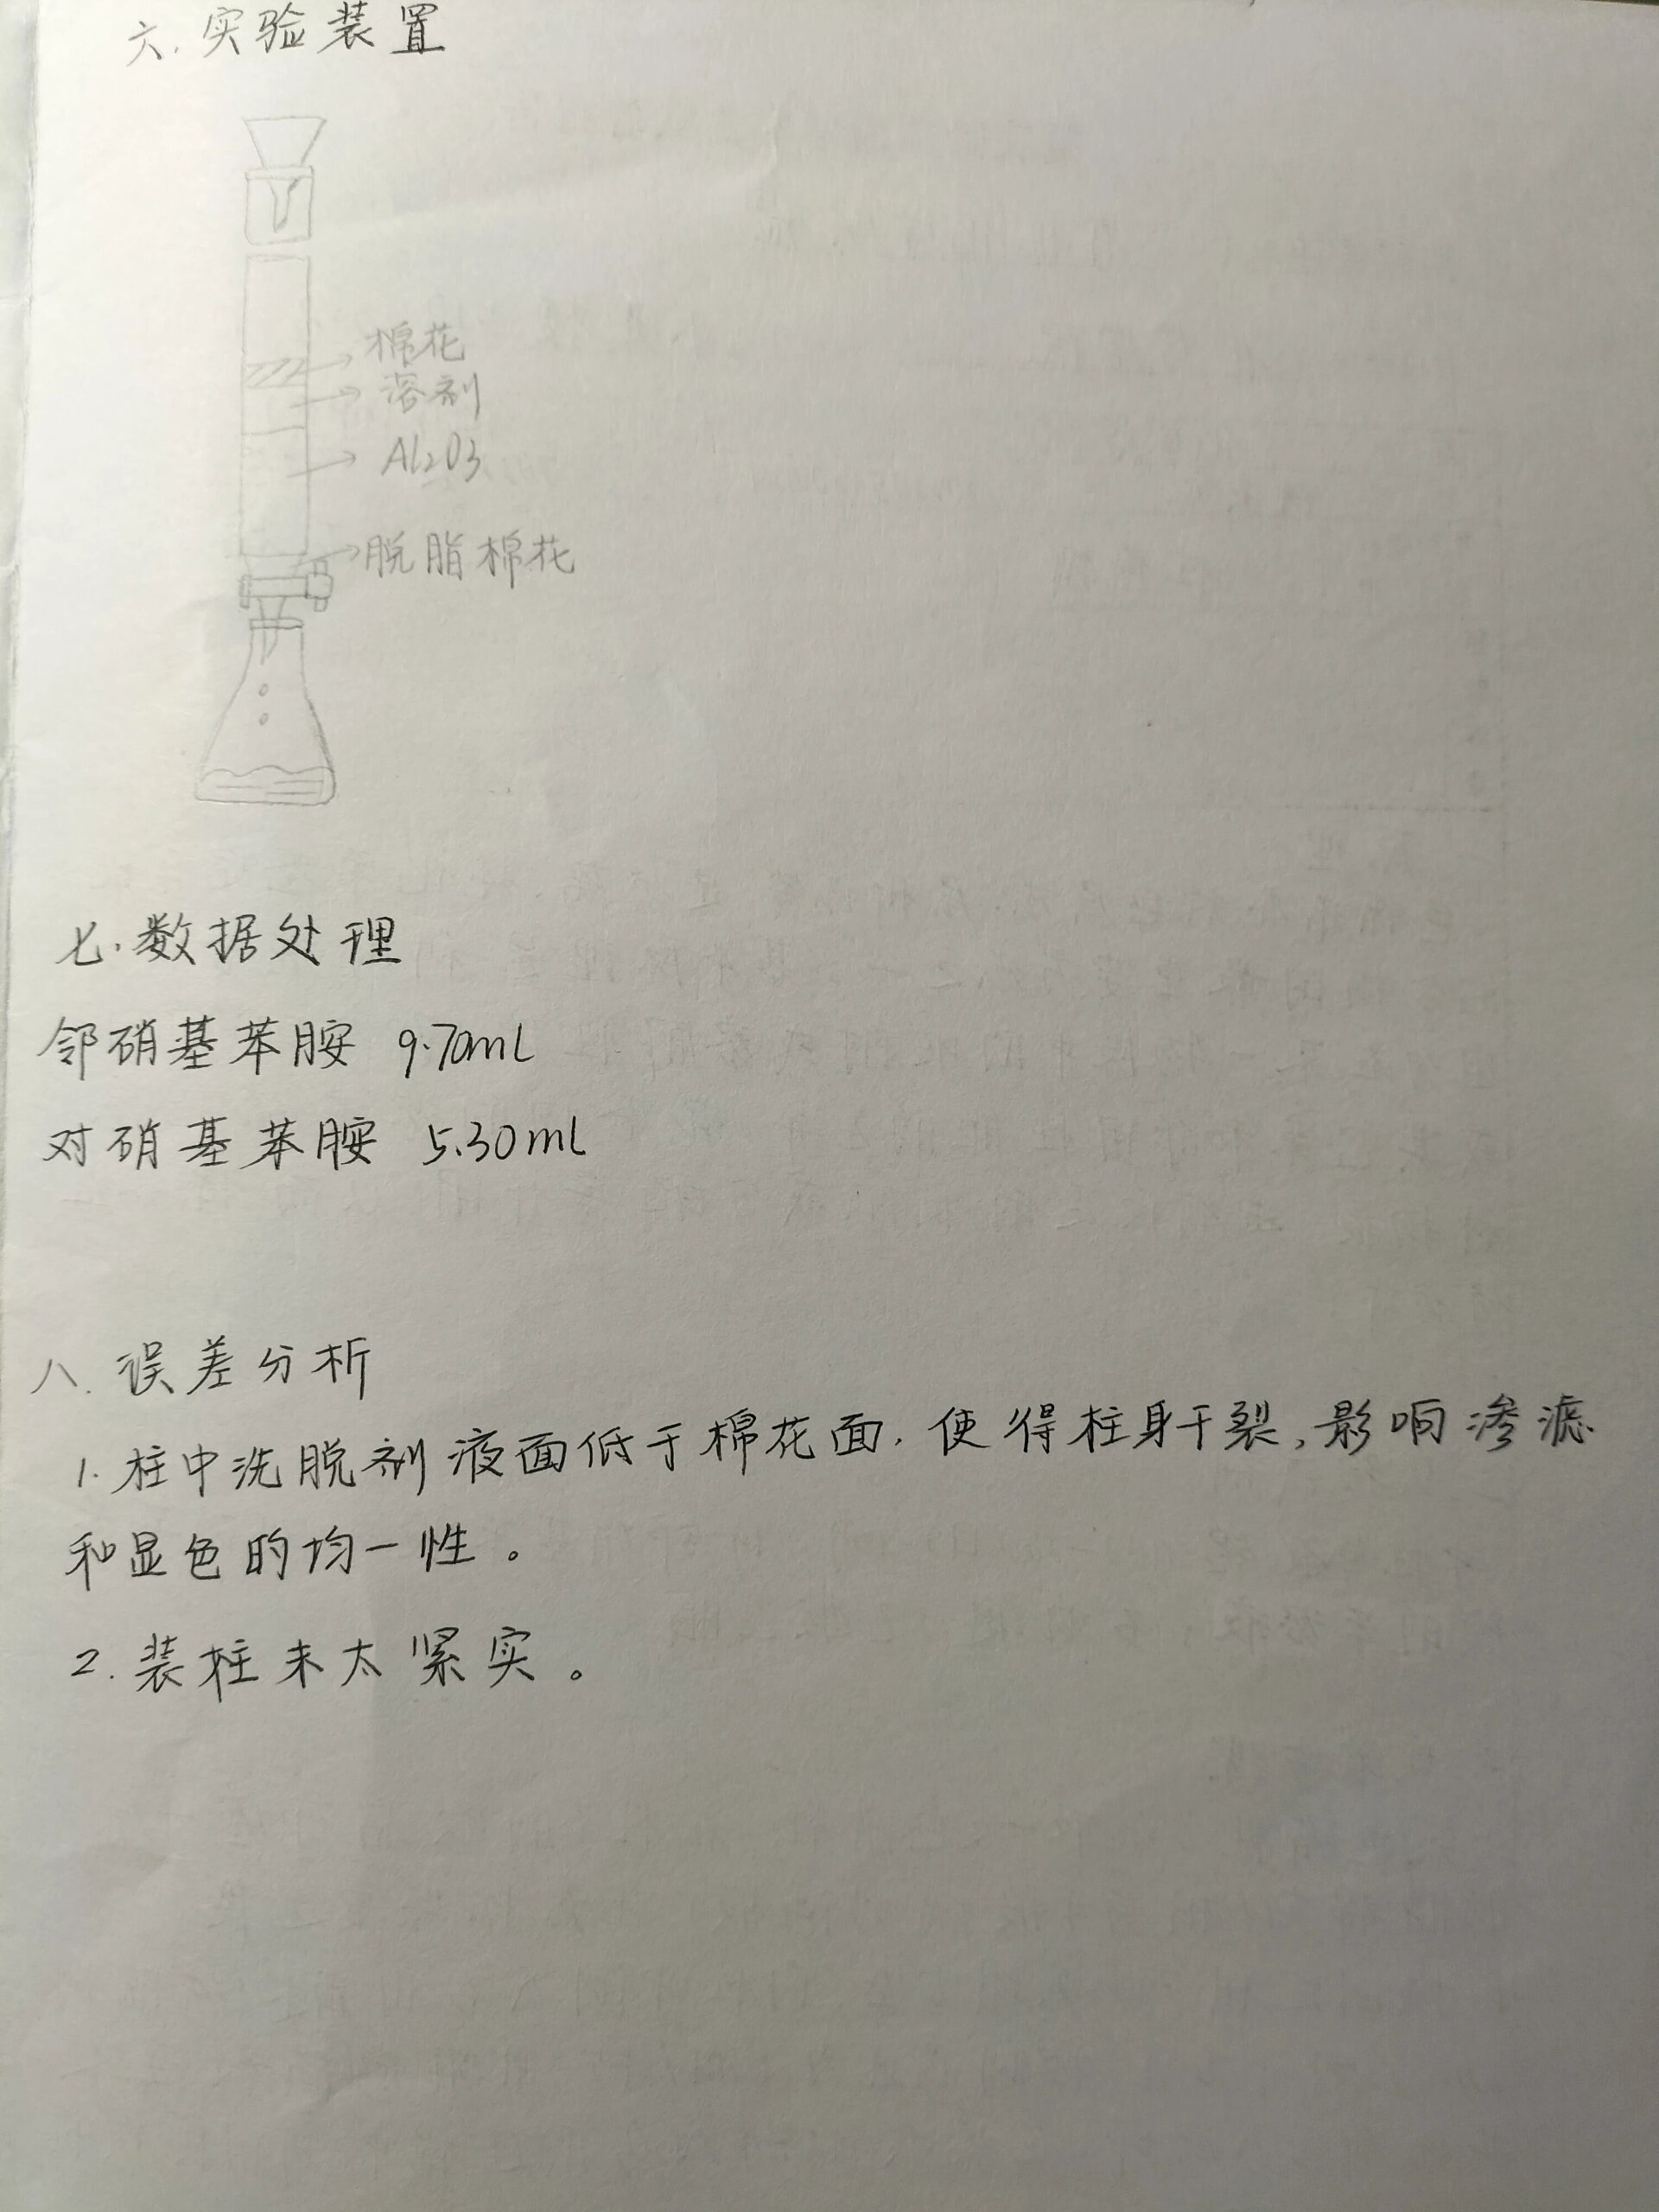 六.实验装置
棉花
溶剂
Al2O3
脱脂棉花
七.数据处理
邻硝基苯胺 9.70mL
对硝基苯胺 5.30mL
八.误差分析
1.柱中洗脱剂液面低于棉花面.使得柱身干裂,影响渗滤
和显色的均一性。
2.装柱未太紧实。